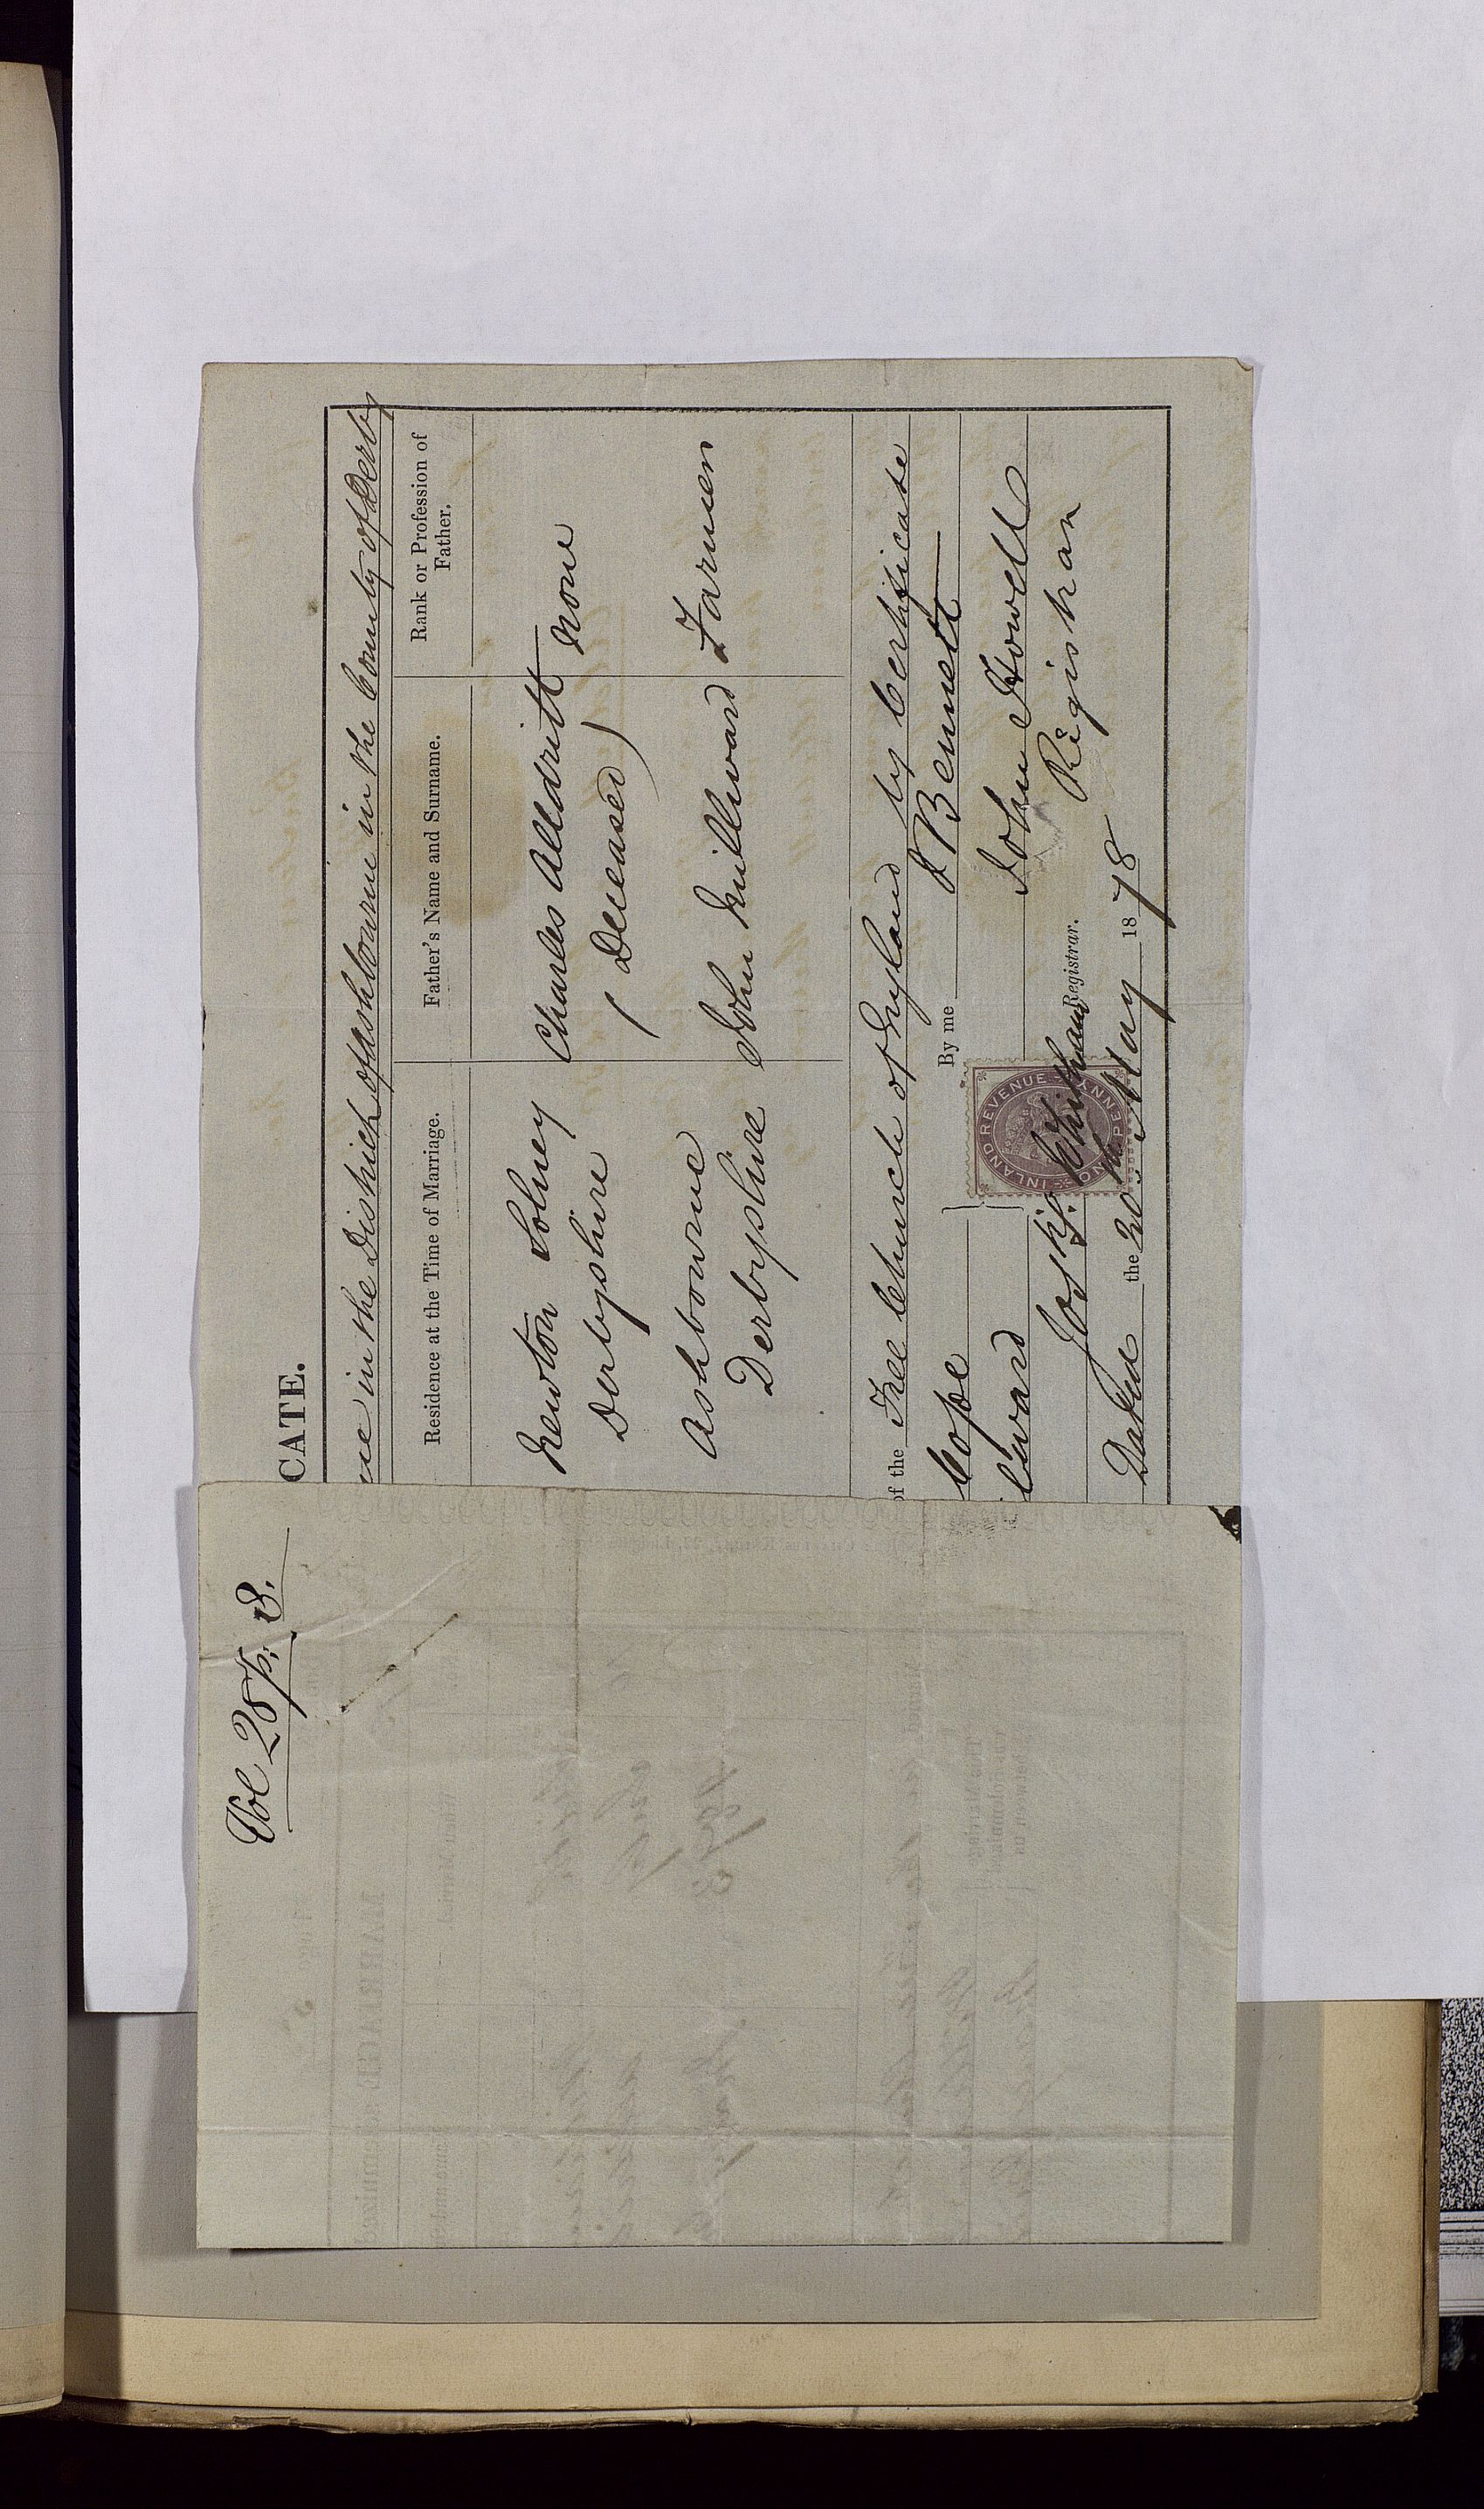 Vol 28 p. 8.
CATE.
ne in the District of Ashbourne in the County of Derby
Residence at the Time of Marriage.
Father's Name and Surname.
Rank or Profession of
Father.
Newton Solney
Derbyshire
Charles Alldritt
(Deceased)
none
Ashbourne
Derbyshire
John Millward
Farmer
of the Free Church of England by Certificate
Cope
By me
J Bennett
lward
John Howell
Registrar
Registrar.
Dated the 20th May 1878
INLAND REVENUE
ONE PENNY
MARRIAGE solemnized